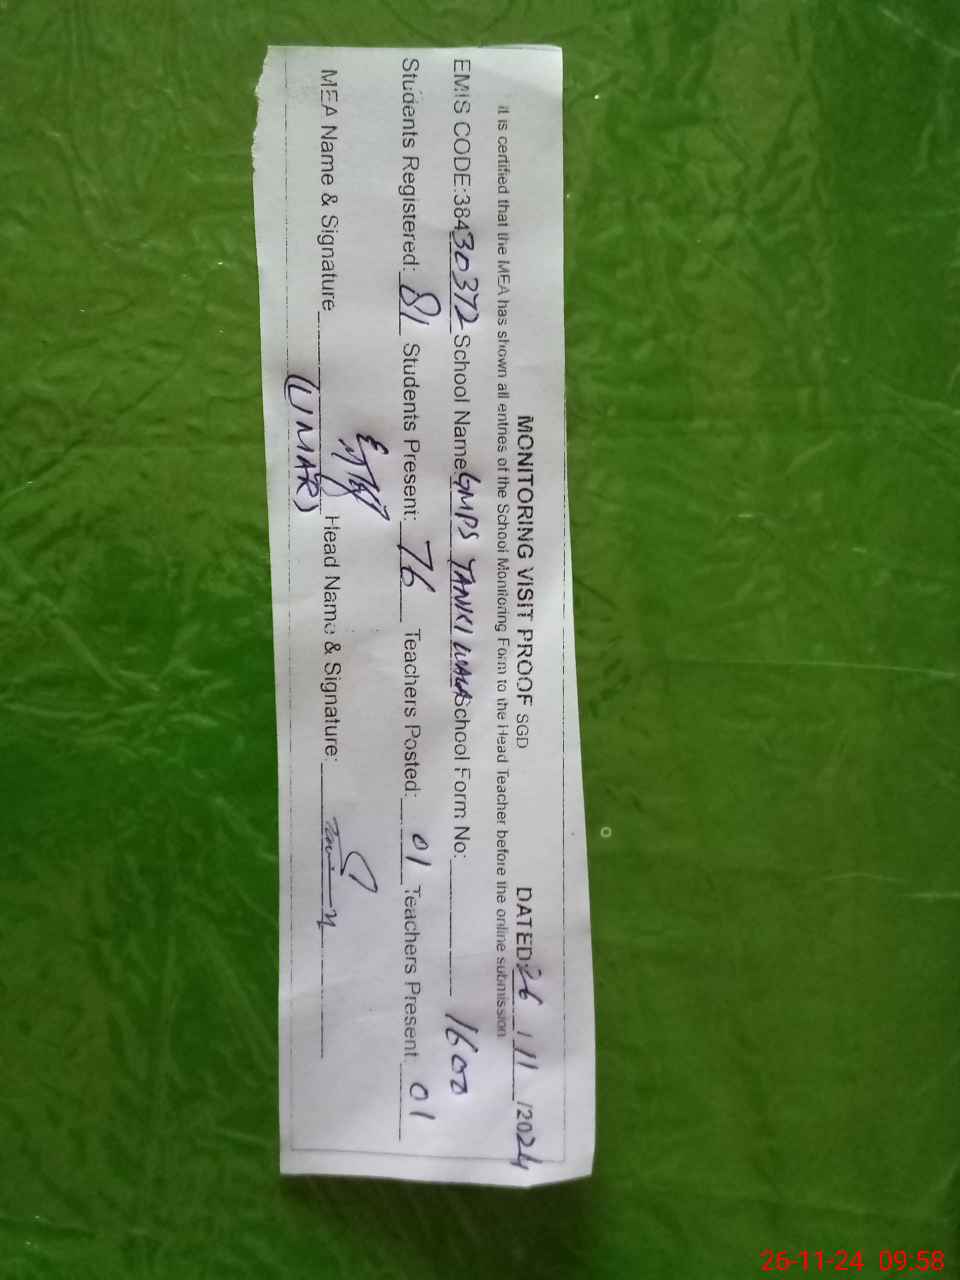 MONITORING VISIT PROOF SGD DATED: 26 / 11 / 2024
It is certified that the MEA has shown all entries of the School Monitoring Form to the Head Teacher before the online submission
EMIS CODE:38430372 School Name: GMPS TANKI WALA School Form No: 1600
Students Registered: 81 Students Present: 76 Teachers Posted: 01 Teachers Present: 01
MEA Name & Signature Head Name & Signature:
(UMAR)
26-11-24 09:58